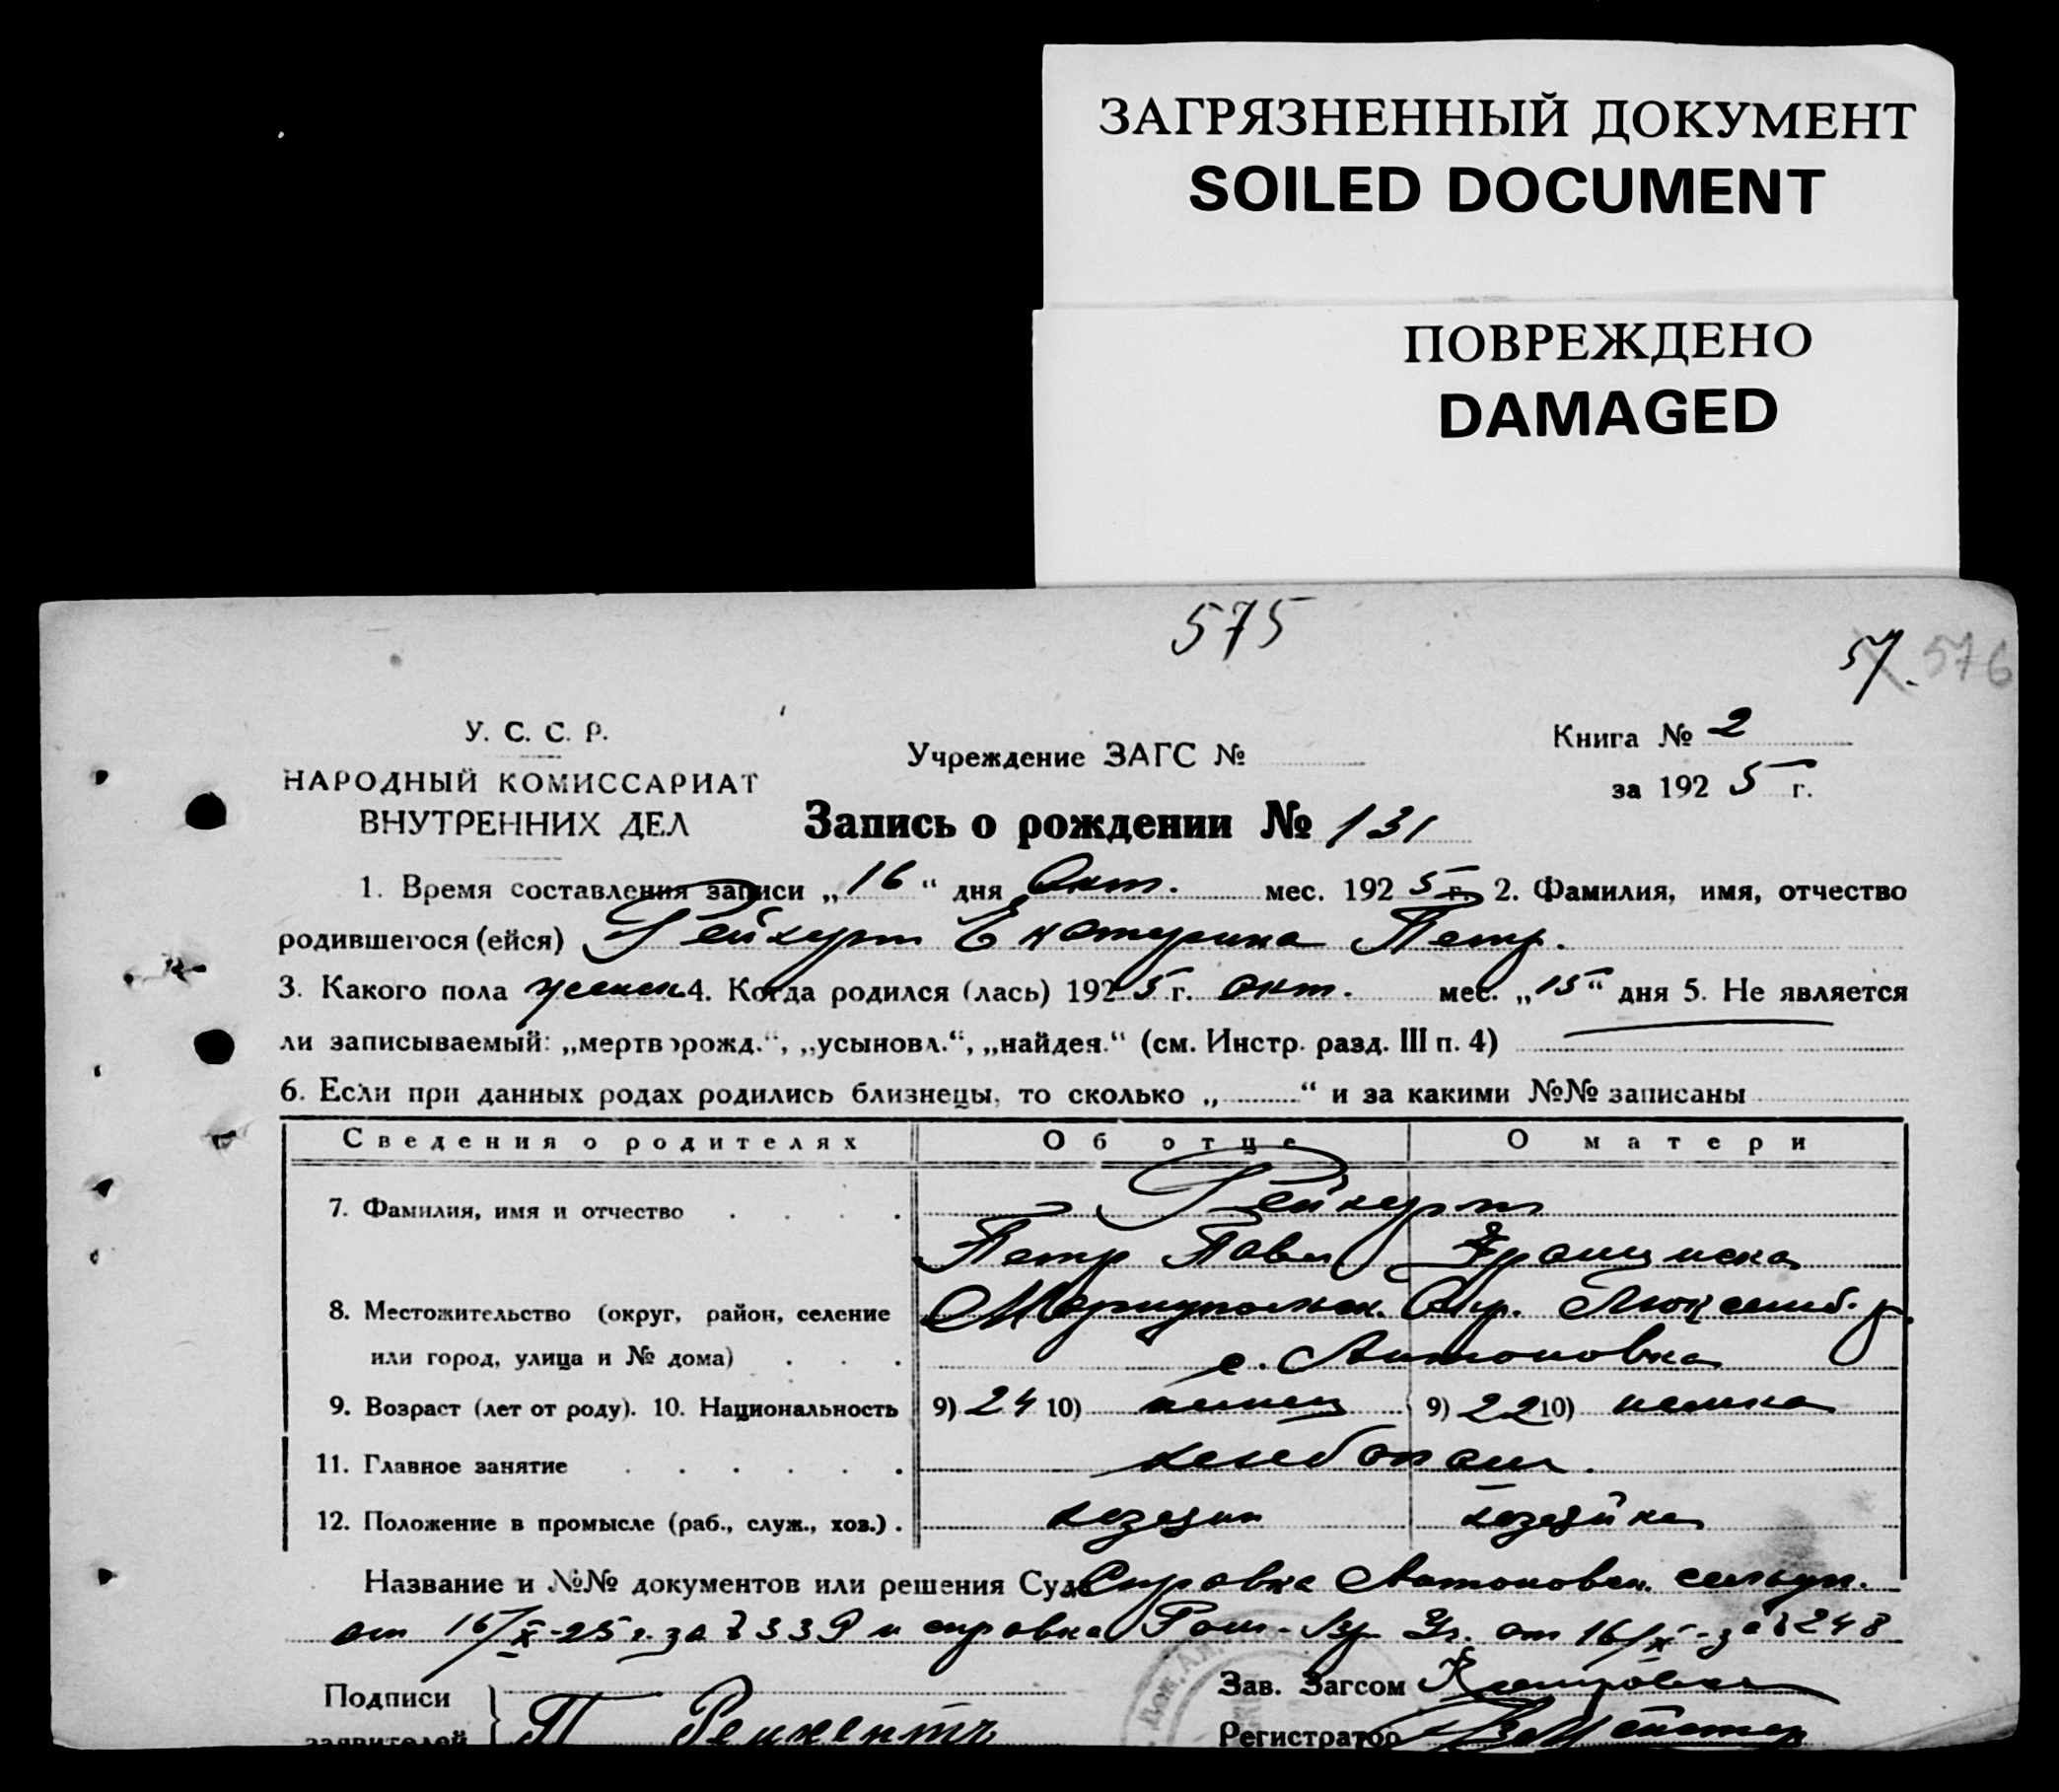 ЗАГРЯЗНЕННЫЙ ДОКУМЕНТ
SOILED DOCUMENT
ПОВРЕЖДЕНО
DAMAGED
575
57. 576
У. С. С. Р.
НАРОДНЫЙ КОМИССАРИАТ
ВНУТРЕННИХ ДЕЛ
Учреждение ЗАГС №
Книга № 2
за 1925 г.
Запись о рождении № 131
1. Время составления записи „16“ дня Окт. мес. 1925 г. 2. Фамилия, имя, отчество
родившегося (ейся) Рейхерт Екатерина Петр.
3. Какого пола женск 4. Когда родился (лась) 1925 г. окт. мес. „15“ дня 5. Не является
ли записываемый: „мертворожд.“, „усыновл.“, „найден.“ (см. Инстр. разд. III п. 4)
6. Если при данных родах родились близнецы, то сколько „..........“ и за какими №№ записаны
Сведения о родителях Об отце О матери
7. Фамилия, имя и отчество Рейхерт
Петр Павл Франциска
8. Местожительство (округ, район, селение Мариупольск. Окр. Люксемб. р.
или город, улица и № дома) с. Антоновка
9. Возраст (лет от роду). 10. Национальность 9) 24 10) немец 9) 22 10) немка
11. Главное занятие хлебопаш.
12. Положение в промысле (раб., служ., хоз.) хозяин хозяйка
Название и №№ документов или решения Суда Справка Антоновск.
от 16/X-25 г. за № 339 и справка от 16/X-за № 248
Подписи
заявителей } П Рейхертъ
Зав. Загсом
Регистратор